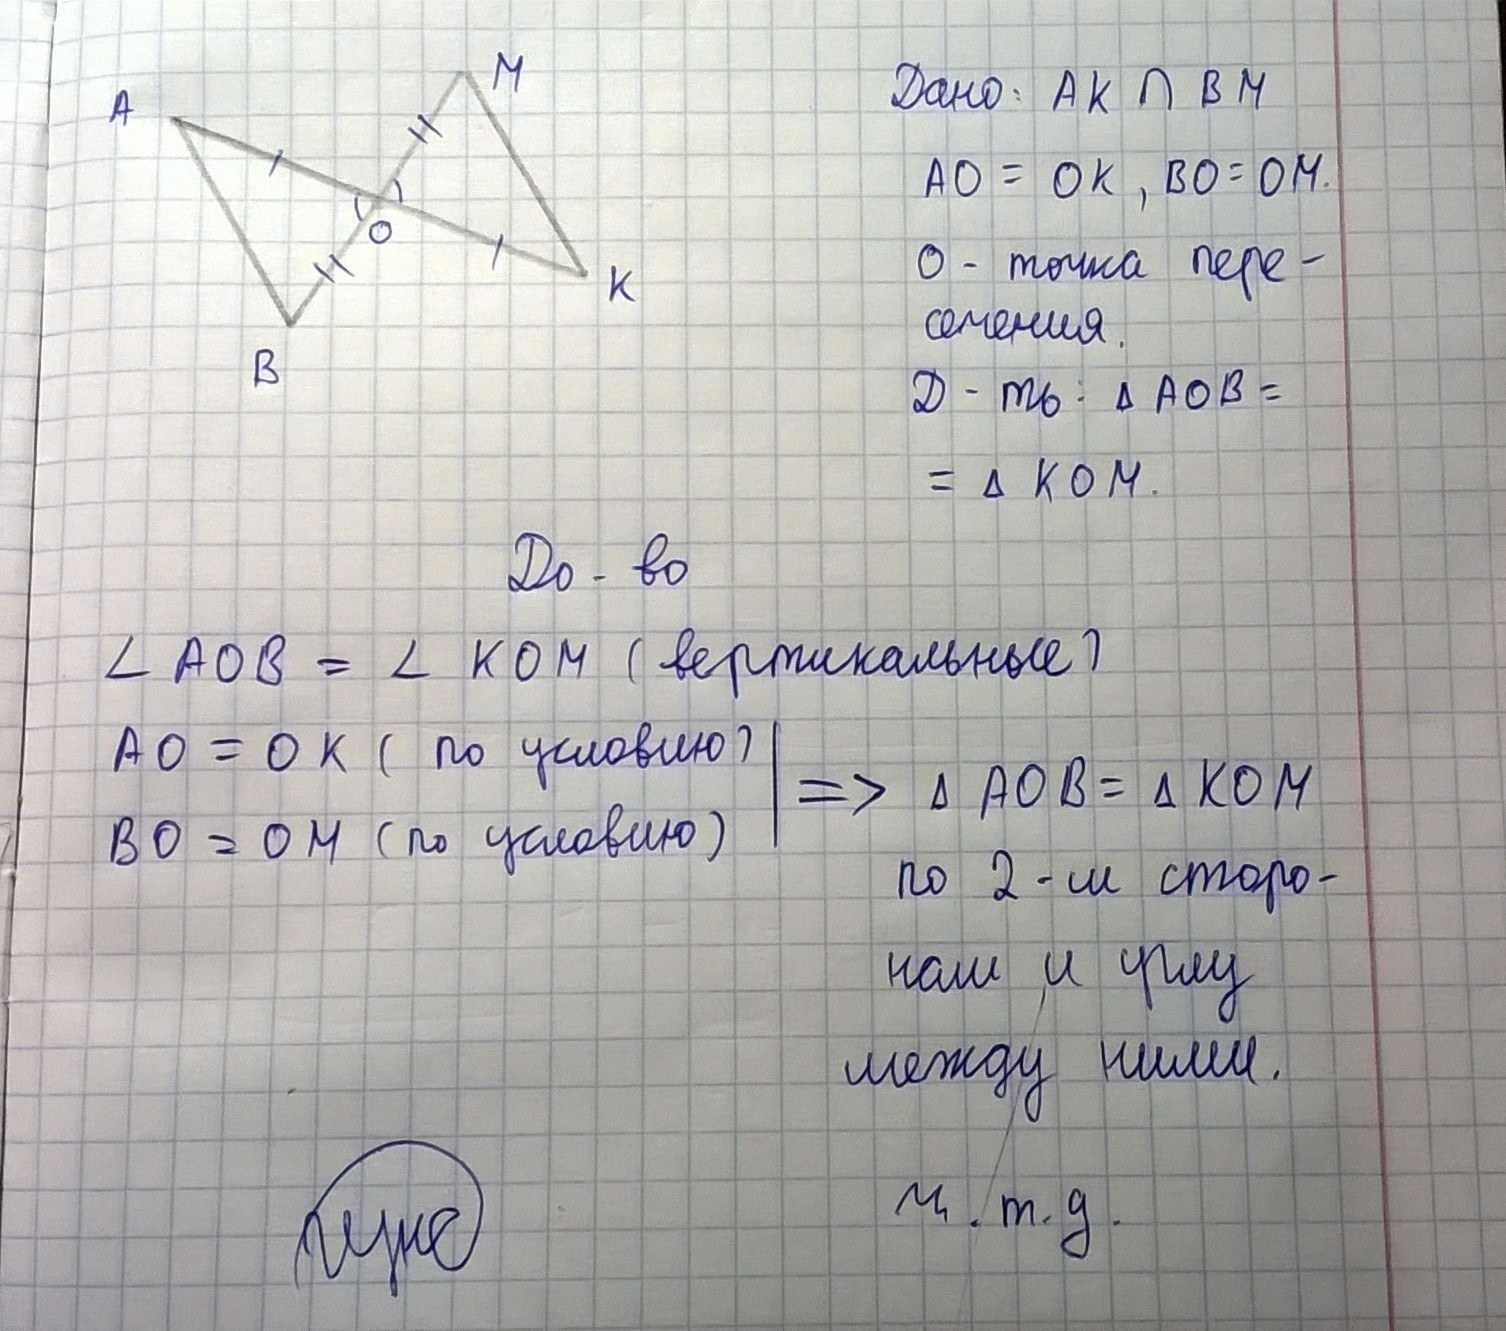 A
M
O
K
B
Дано: AK ∩ BM
AO = OK, BO = OM.
O - точка пере-
сечения.
Д - ть: △ AOB =
= △ KOM.
До - во
∠ AOB = ∠ KOM (вертикальные)
AO = OK (по условию)
BO = OM (по условию)
=> △ AOB = △ KOM
по 2-м сторо-
нам и углу
между ними.
ч.т.д.